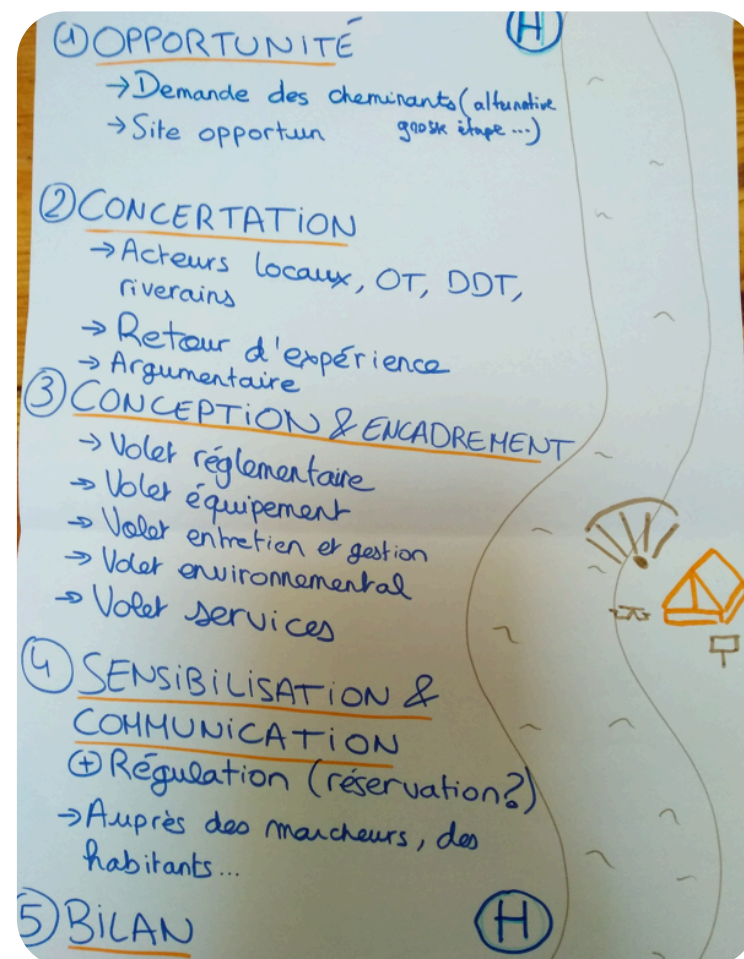 ① OPPORTUNITÉ
H
→ Demande des cheminants (alternative
grosse étape ...)
→ Site opportun
② CONCERTATION
→ Acteurs locaux, OT, DDT,
riverains
→ Retour d'expérience
→ Argumentaire
③ CONCEPTION & ENCADREMENT
→ Volet réglementaire
→ Volet équipement
→ Volet entretien et gestion
→ Volet environnemental
→ Volet services
④ SENSIBILISATION &
COMMUNICATION
⊕ Régulation (réservation?)
→ Auprès des marcheurs, des
habitants...
⑤ BILAN
H